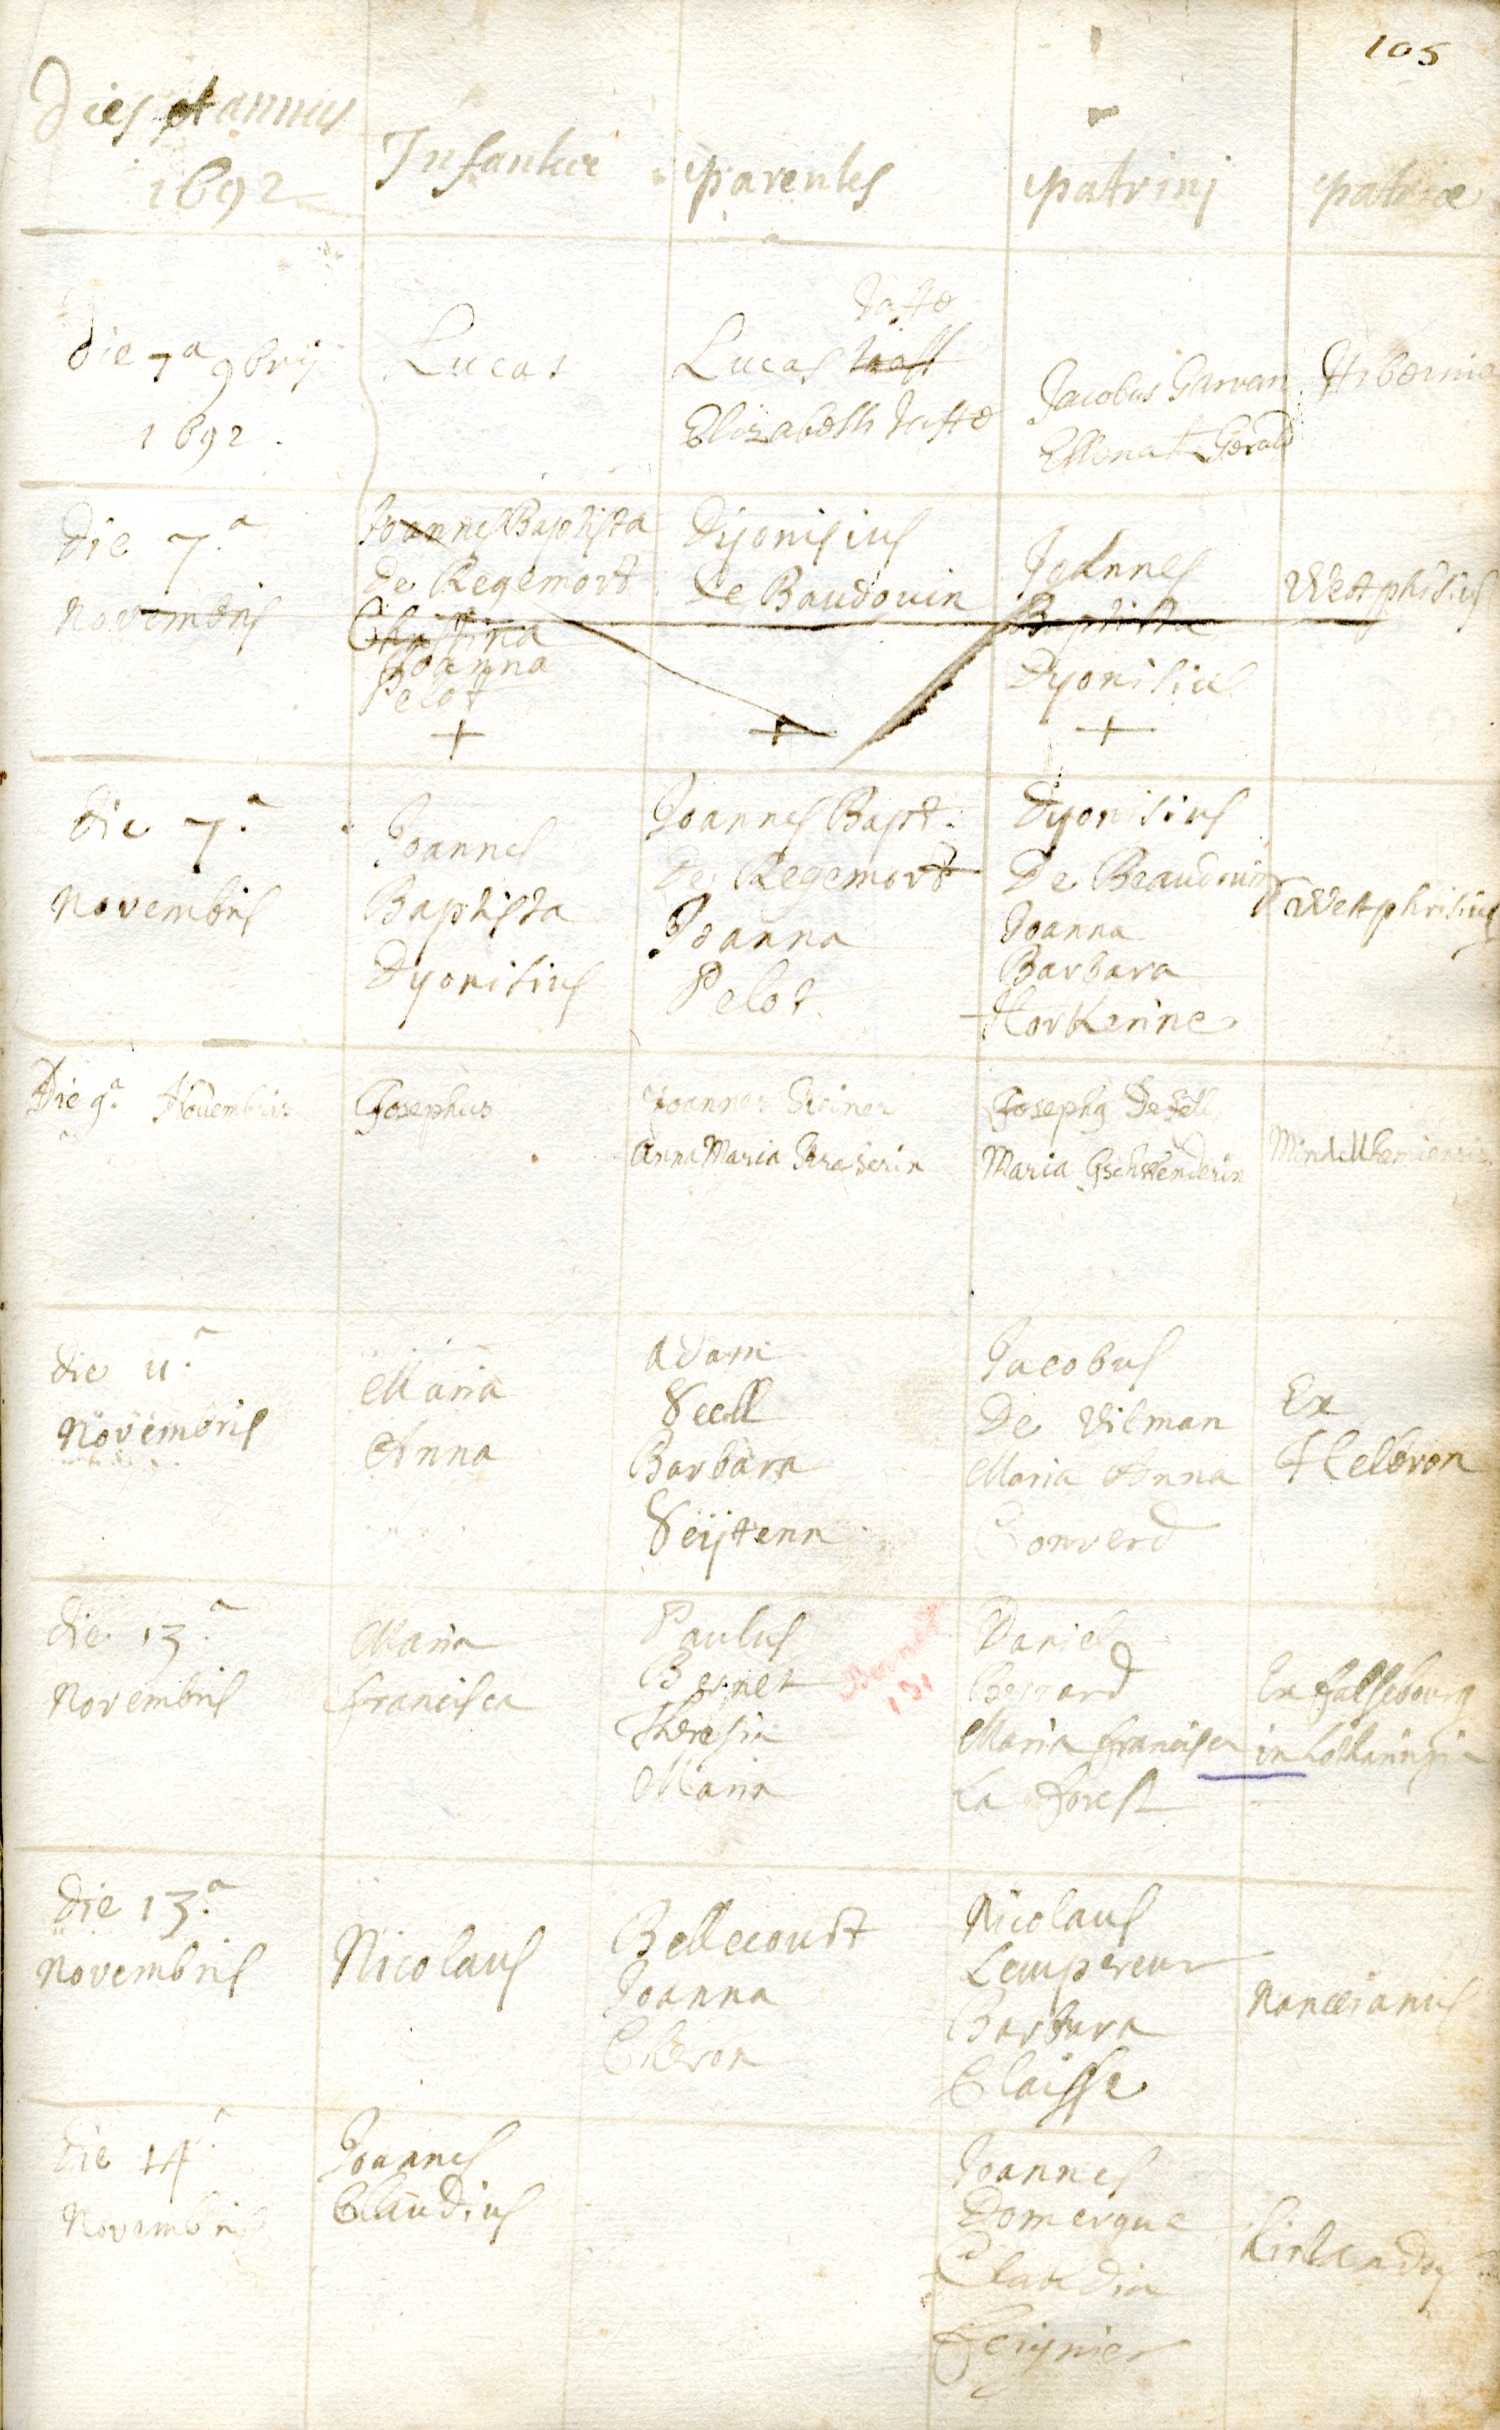 105
Dies et annus
1692
Infantes
parentes
patrini
patriæ
die 7a 9brij
1692.
Lucas
Taffe
Lucas
Elizabeth Taffe
Jacobus Garvan
Ellena Gerald
Hibernia
die 7.a
Novembris
Joannes Baptista
de Regemort
Christina
Joanna
Pelot
+
Dijonisius
de Baudouin
+
Joannes
Baptista
Dyonisius
+
Westphrisius
die 7.a
Novembris
Joannes
Baptista
Dyonisius
Joannes Bapt.
De Regemort
Joanna
Pelot.
Dyonisius
De Beaudouin
Joanna
Barbara
Horkenne
Westphrisius
Die 9.a Novembris
Josephus
Joannes
Anna Maria
Josephq
Maria Gschwenderin
Mindelhemiensis
die 11.a
Novembris
Maria
Anna
Adam
Veell
Barbara
Veijtenn
Jacobus
De Vilman
Maria Anna
Converd
Ex
Helbron
die 13.a
Novembris
Maria
francisca
Paulus
Besnet
Theresia
Maria
131
Daniel
Bernard
Maria francisca
La forest
Ex falsebourg
in Lotharingia
die 13.a
Novembris
Nicolaus
Bellecourt
Joanna
Cleron
Nicolaus
Lempereur
Barbara
Claisse
Nanceianus
die 14.a
Novembris
Joannes
Claudius
Joannes
Domergue
Claudia
Feignier